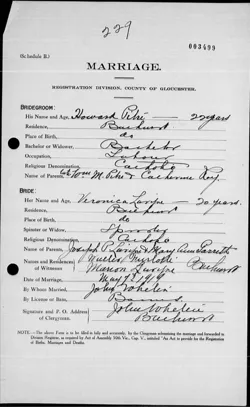 229
003499
(Schedule B.)
MARRIAGE.
REGISTRATION DIVISION, COUNTY OF GLOUCESTER.
BRIDEGROOM:
His Name and Age, Howard Pitre — 22 years
Residence, Bathurst
Place of Birth, do
Bachelor or Widower, Bachelor
Occupation, Labourer
Religious Denomination, Catholic
Name of Parents, Wm M. Pitre & Catherine Roy
BRIDE:
Her Name and Age, Veronica — 20 years
Residence, Bathurst
Place of Birth, do
Spinster or Widow, Spinster
Religious Denomination, Catholic
Name of Parents, Joseph P. & Mary Ann
Names and Residences of Witnesses
Bathurst
Date of Marriage, May 1919
By Whom Married, John Whelen
By License or Banns, Banns
Signature and P. O. Address of Clergyman. John Whelen
Bathurst
NOTE.—The above Form is to be filled in fully and accurately, by the Clergyman solemnizing the marriage and forwarded to Division Registrar, as required by Act of Assembly 50th Vic., Cap. V., intituled "An Act to provide for the Registration of Births, Marriages and Deaths.